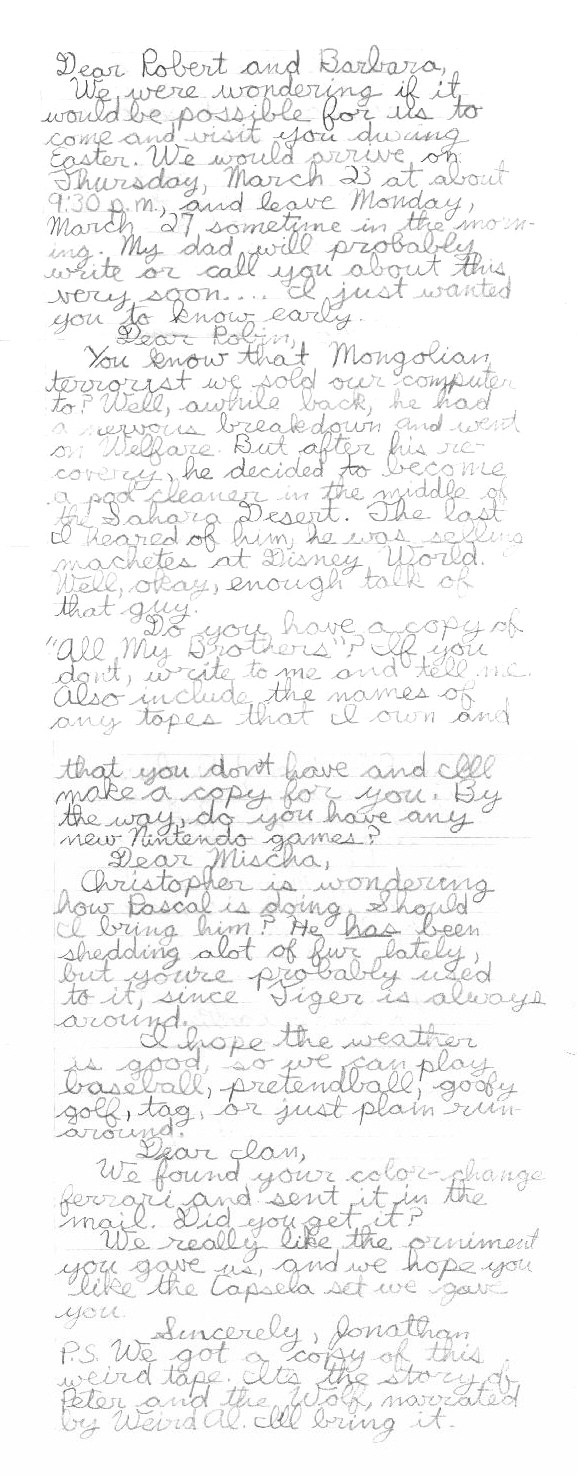 Dear Robert and Barbara,
We were wondering if it
would be possible for us to
come and visit you during
Easter. We would arrive on
Thursday, March 23 at about
9:30 p.m., and leave Monday,
March 27 sometime in the morn-
ing. My dad will probably
write or call you about this
very soon.... I just wanted
you to know early.
Dear Robin,
You know that Mongolian
terrorist we sold our computer
to? Well, awhile back, he had
a nervous breakdown and went
on Welfare. But after his re-
covery, he decided to become
a pool cleaner in the middle of
the Sahara Desert. The last
I heared of him, he was selling
machetes at Disney World.
Well, okay, enough talk of
that guy.
Do you have a copy of
"All My Brothers"? If you
don't, write to me and tell me.
Also include the names of
any tapes that I own and
that you don't have and I'll
make a copy for you. By
the way, do you have any
new Nintendo games?
Dear Mischa,
Christopher is wondering
how Pascal is doing. Should
I bring him? He has been
shedding alot of fur lately,
but you're probably used
to it, since Tiger is always
around.
I hope the weather
is good, so we can play
baseball, pretendball, goofy
golf, tag, or just plain run-
around.
Dear Ian,
We found your color-change
ferrari and sent it in the
mail. Did you get it?
We really like the orniment
you gave us, and we hope you
like the Capsela set we gave
you.
Sincerely, Jonathan
P.S. We got a copy of this
weird tape. It's the story of
Peter and the Wolf, narrated
by Weird Al. I'll bring it.